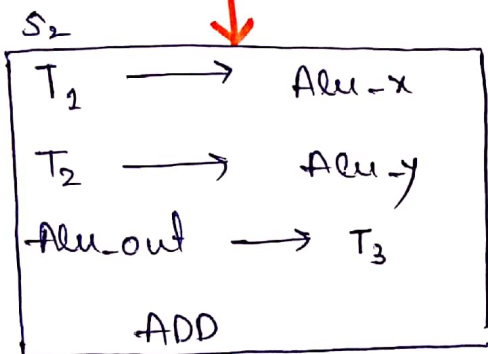 S₂
T₁ → Alu-x
T₂ → Alu-y
Alu-out → T₃
ADD